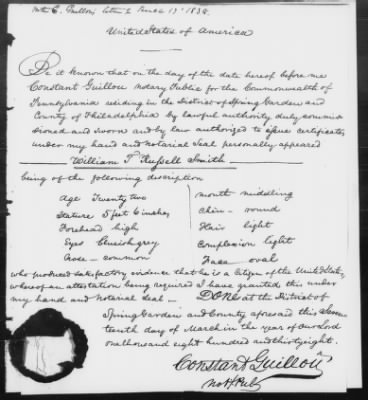 United States of America
Be it known that on the day of the date hereof before me
Constant Guillou Notary Public for the Commonwealth of
Pennsylvania residing in the District of Spring Garden and
County of Philadelphia by lawful authority duly commis
sioned and sworn and by law authorized to issue certificates
under my hand and notarial Seal personally appeared
William P. Russell Smith
being of the following description
Age Twenty two
Stature 5 feet 6 inches
Forehead high
Eyes Blueish grey
Nose - common
mouth middling
Chin - round
Hair light
Complexion light
Face oval
who produced satisfactory evidence that he is a Citizen of the United States,
whereof an attestation being required I have granted this under
my hand and notarial seal - Done at the District of
Spring Garden and County aforesaid this Seven
teenth day of March in the year of our Lord
one thousand eight hundred and thirty eight.
Constant Guillou
Not. Pub.